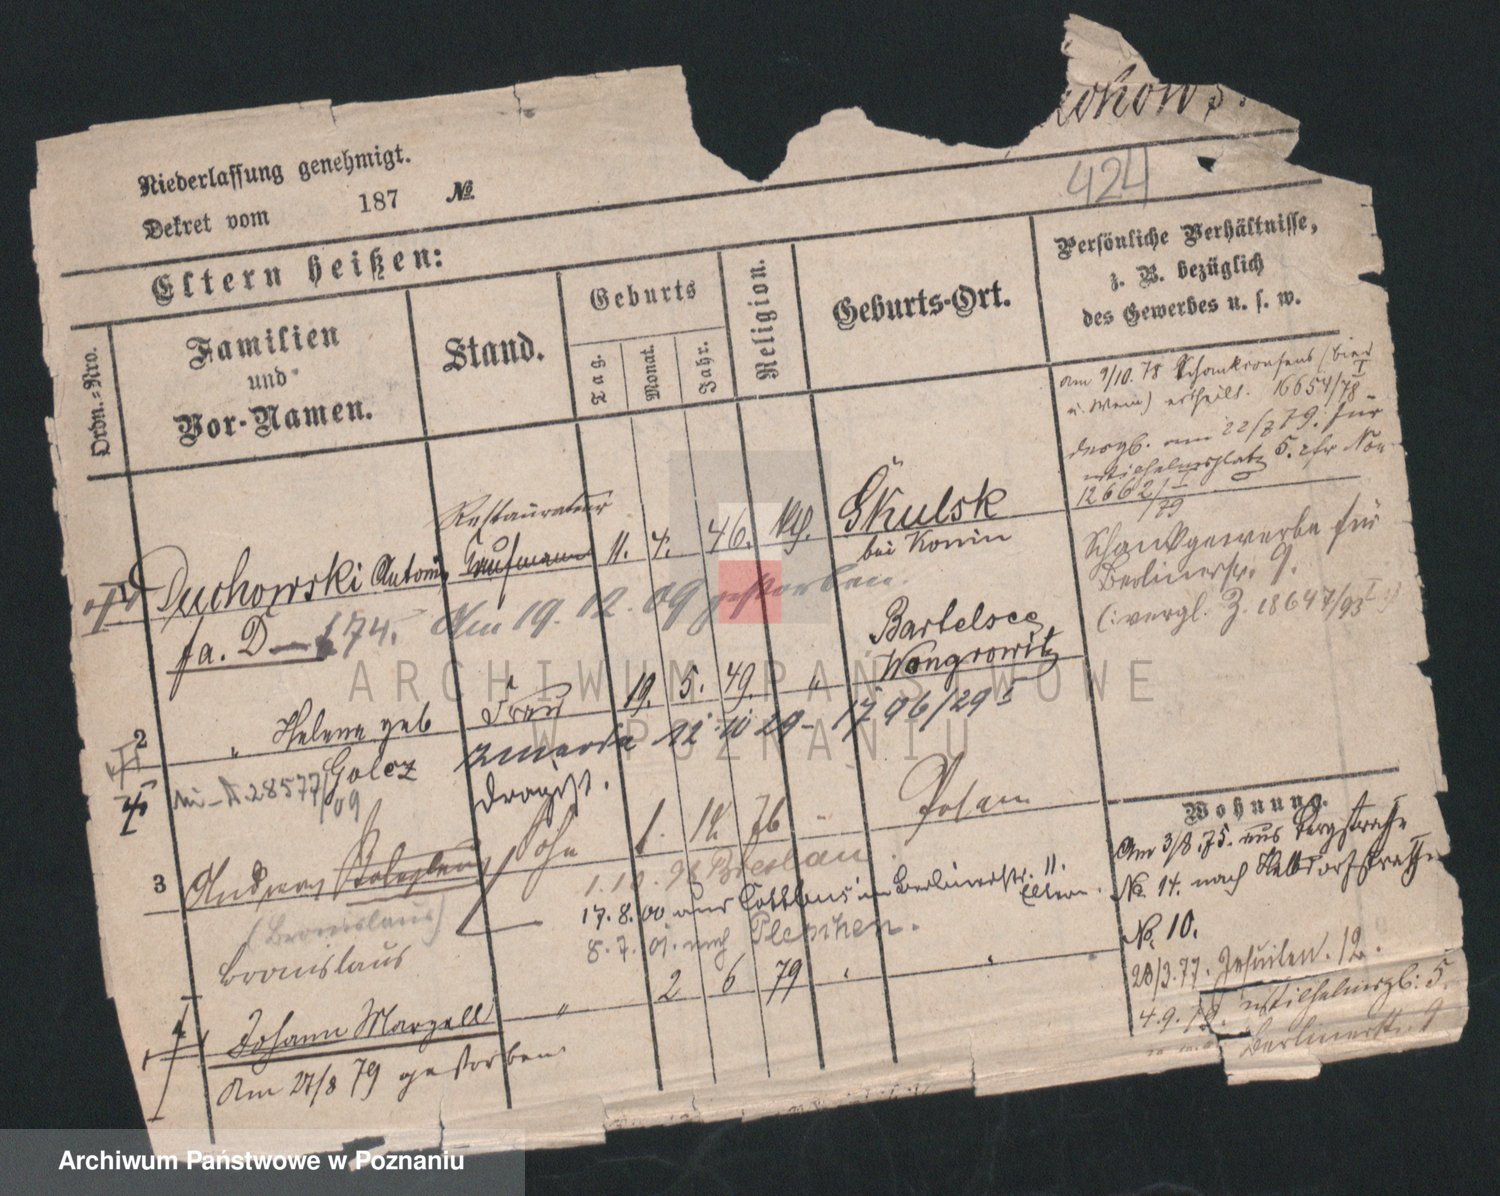 chows.
Niederlassung genehmigt.
Dekret vom 187 №
424
Eltern heißen:
Ordn.-Nro.
Familien
und
Vor-Namen.
Stand.
Geburts
Tag.
Monat.
Jahr.
Religion.
Geburts-Ort.
Persönliche Verhältnisse,
z. B. bezüglich
des Gewerbes u. s. w.
am 9/10. 78 Schankconsens (Bier
u. Wein) ertheilt. 16654/78 I
desgl. am 22/8 79. für
Wilhelmsplatz 5.
12662/79 I
Schankgewerbe für
Berlinerstr. 9.
(: vergl. Z. 18647/93 I :)
Restaurateur
Duchowski Antonin Kaufmann 11. 4. 46. kth. Skulsk
bei Konin
fa. D 174. Am 19. 12. 09 gestorben.
Bartelsee
Wongrowitz
2 " Helene geb Frau 19. 5. 49. "
Golcz
28577/09
zmarła 12 10 29 - 1796/29
Drogist.
3 Andreas Sohn 1. 11. 76 " Posen
(Bronislaus)
Bronislaus
1. 10. 98 Breslau.
17. 8. 00 aus Cottbus Berlinerstr. 11.
Eltern.
8. 7. 01. nach Pleschen.
4 Johann Marzell " 2 6 79 " "
Am 27/8 79 gestorben
Wohnung.
Am 3/8. 75. aus Bergstrasse
No. 14. nach Halbdorfstrasse
No. 10.
28/3. 77. Jesuiten. 12.
4. 9. 79. Wilhelmspl: 5.
Berlinerstr. 9
ARCHIWUM PAŃSTWOWE
W POZNANIU
Archiwum Państwowe w Poznaniu